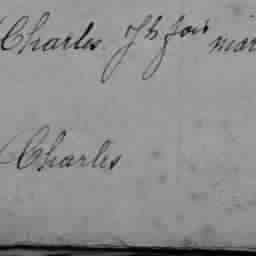 Charles. Jh fois mar
Charles